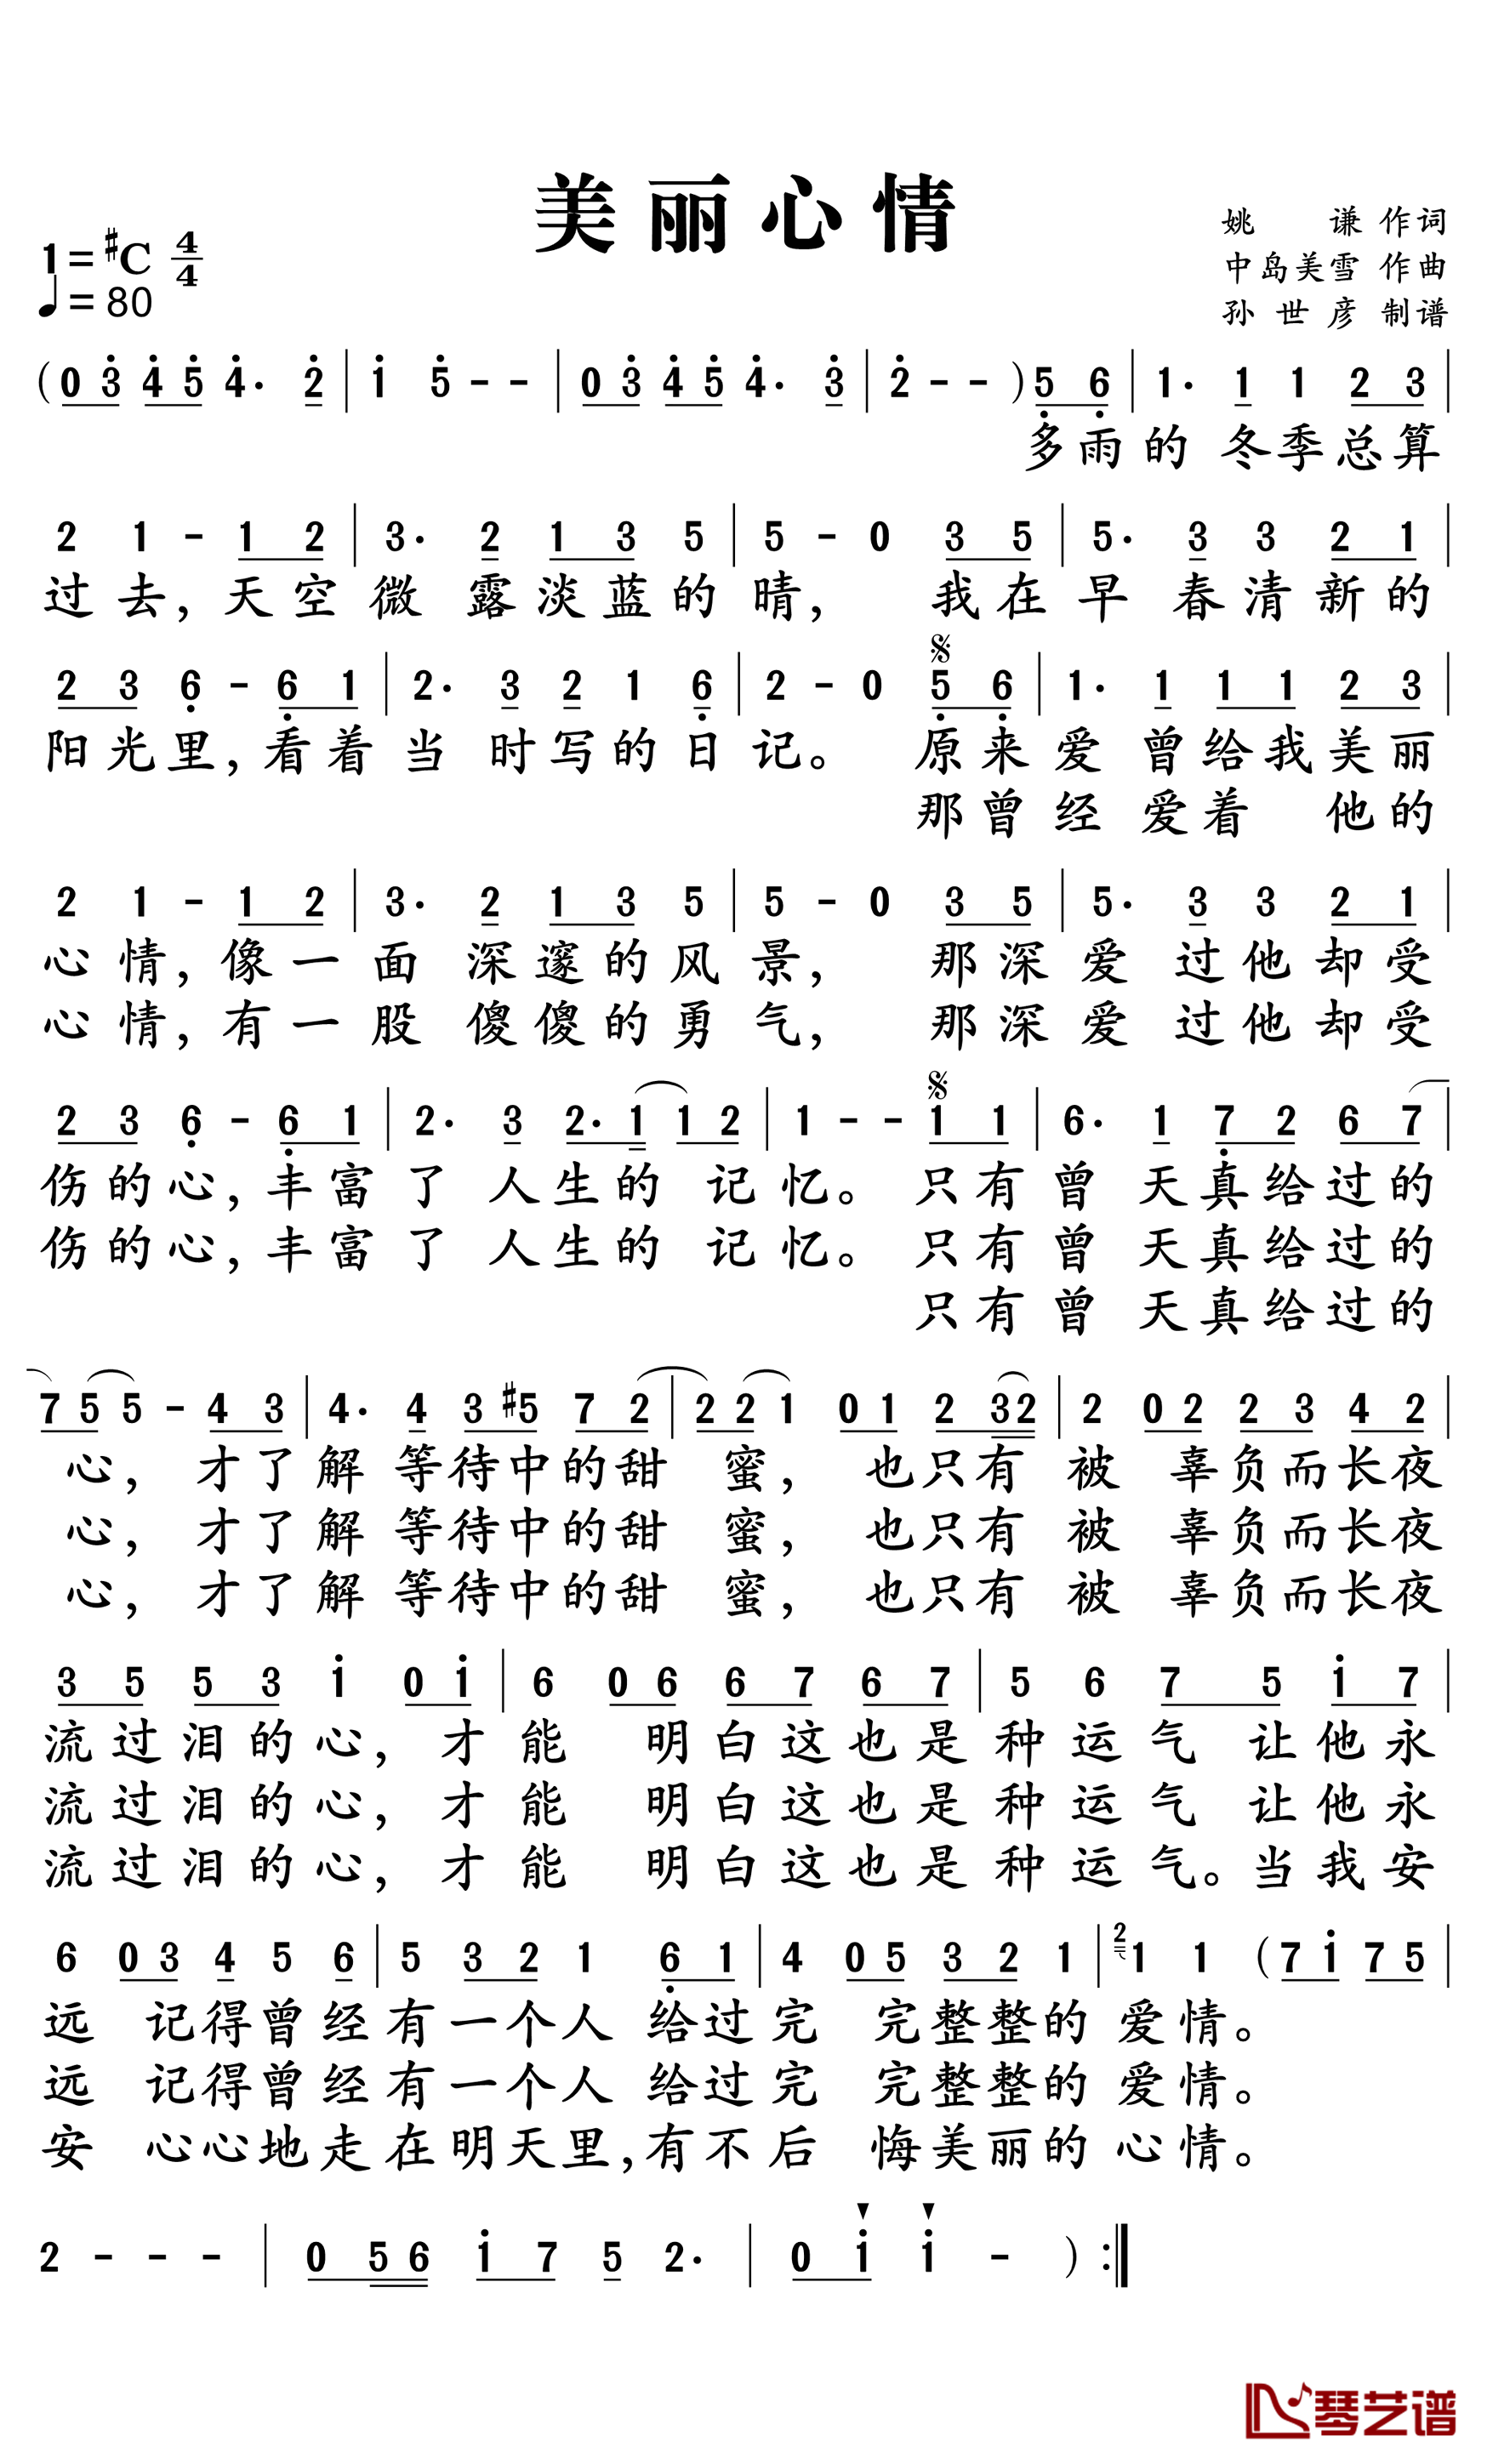 美丽心情
姚 谦 作词
1=#C 4/4
中岛美雪 作曲
♩=80
孙世彦 制谱
(0 3 4 5 4· 2 | 1 5 - - | 0 3 4 5 4· 3 | 2 - - )5 6 | 1· 1 1 2 3 |
多雨的 冬季总算
2 1 - 1 2 | 3· 2 1 3 5 | 5 - 0 3 5 | 5· 3 3 2 1 |
过去，天空微 露淡蓝的晴， 我在早 春清新的
2 3 6 - 6 1 | 2· 3 2 1 6 | 2 - 0 5 6 | 1· 1 1 1 2 3 |
阳光里，看着当 时写的日记。 原来爱 曾给我美丽
那曾经 爱着 他的
2 1 - 1 2 | 3· 2 1 3 5 | 5 - 0 3 5 | 5· 3 3 2 1 |
心情，像一面 深邃的风景， 那深爱 过他却受
心情，有一股 傻傻的勇气， 那深爱 过他却受
2 3 6 - 6 1 | 2· 3 2· 1 1 2 | 1 - - 1 1 | 6· 1 7 2 6 7 |
伤的心，丰富了 人生的 记忆。 只有曾 天真给过的
伤的心，丰富了 人生的 记忆。 只有曾 天真给过的
只有曾 天真给过的
7 5 5 - 4 3 | 4· 4 3 #5 7 2 | 2 2 1 0 1 2 3 2 | 2 0 2 2 3 4 2 |
心， 才了解 等待中的甜 蜜， 也只有被 辜负而长夜
心， 才了解 等待中的甜 蜜， 也只有被 辜负而长夜
心， 才了解 等待中的甜 蜜， 也只有被 辜负而长夜
3 5 5 3 1 0 1 | 6 0 6 6 7 6 7 | 5 6 7 5 1 7 |
流过泪的心， 才能 明白这也是种运气 让他永
流过泪的心， 才能 明白这也是种运气 让他永
流过泪的心， 才能 明白这也是种运气。当我安
6 0 3 4 5 6 | 5 3 2 1 6 1 | 4 0 5 3 2 1 | 2 1 1 (7 1 7 5 |
远 记得曾经有一个人 给过完 完整整的 爱情。
远 记得曾经有一个人 给过完 完整整的 爱情。
安 心心地走在明天里，有不后 悔美丽的 心情。
2 - - - | 0 5 6 1 7 5 2· | 0 1 1 - ) :‖
琴艺谱